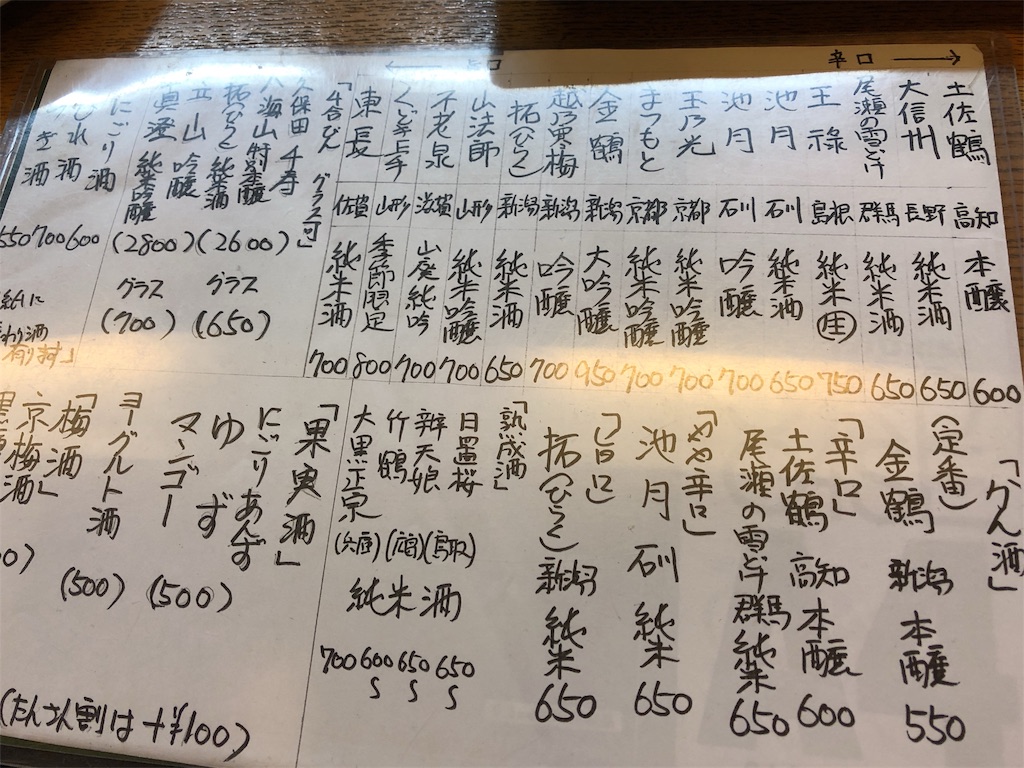 辛口 →
土佐鶴 高知 本醸 600
大信州 長野 純米酒 650
尾瀬の雪どけ 群馬 純米酒 650
王祿 島根 純米 生 750
池月 石川 純米酒 650
池月 石川 吟醸 700
玉乃光 京都 純米吟醸 700
まつもと 京都 純米吟醸 700
金鶴 新潟 大吟醸 950
越乃寒梅 新潟 吟醸 700
拓(ひらく) 新潟 純米酒 650
山法師 山形 純米吟醸 700
不老泉 滋賀 山廃純吟 700
くどき上手 山形 季節限定 800
東長 佐賀 純米酒 700
「4合びん グラス可」
久保田 千寿
八海山 特別本醸
拓(ひらく) 純米酒
(2600)
グラス
(650)
立山 吟醸
真澄 純米吟醸
(2800)
グラス
(700)
にごり酒 600
700
550
有ります」
「かん酒」
(定番)
金鶴 新潟 本醸 550
「辛口」
土佐鶴 高知 本醸 600
尾瀬の雪どけ 群馬 純米 650
「やや辛口」
池月 石川 純米 650
「旨口」
拓(ひらく) 新潟 純米 650
「熟成酒」
日置桜 (鳥取) 650〜
辨天娘 (鳥取) 650〜
竹鶴 (広島) 600〜
大黒正宗 (兵庫) 700
純米酒
「果実酒」
にごりあんず
ゆず
マンゴー
(500)
ヨーグルト酒
(500)
「梅酒」
京梅酒
(たんさん割は+¥100)